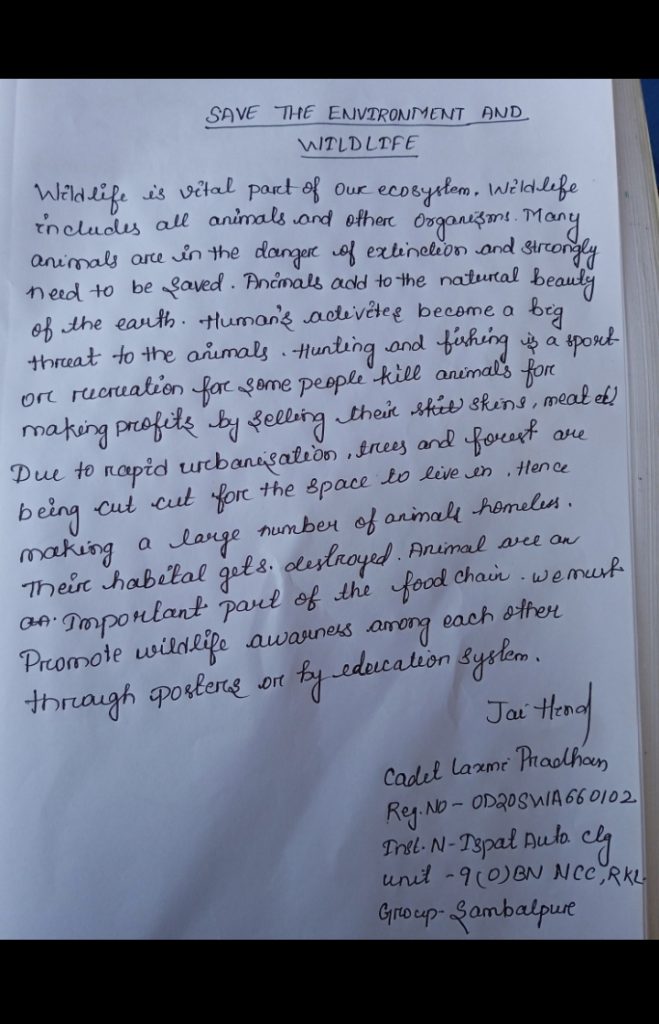 SAVE THE ENVIRONMENT AND
WILDLIFE
Wildlife is vital part of our ecosystem. Wildlife
includes all animals and other organisms. Many
animals are in the danger of extinction and strongly
need to be saved. Animals add to the natural beauty
of the earth. Human's activites become a big
threat to the animals. Hunting and fishing is a sport
or recreation for some people kill animals for
making profits by selling their skins, meat etc)
Due to rapid urbanisation, trees and forest are
being cut cut for the space to live in. Hence
making a large number of animals homeless.
Their habital gets. destroyed. Animal are an
an. Important part of the food chain. we must
Promote wildlife awarness among each other
through posters or by education system.
Jai Hind
Cadet Laxmi Pradhan
Reg. No - OD20SWIA660102
Inst. N - Ispat Auto. clg
unit - 9(O)BN NCC, RKL
Group - Sambalpur